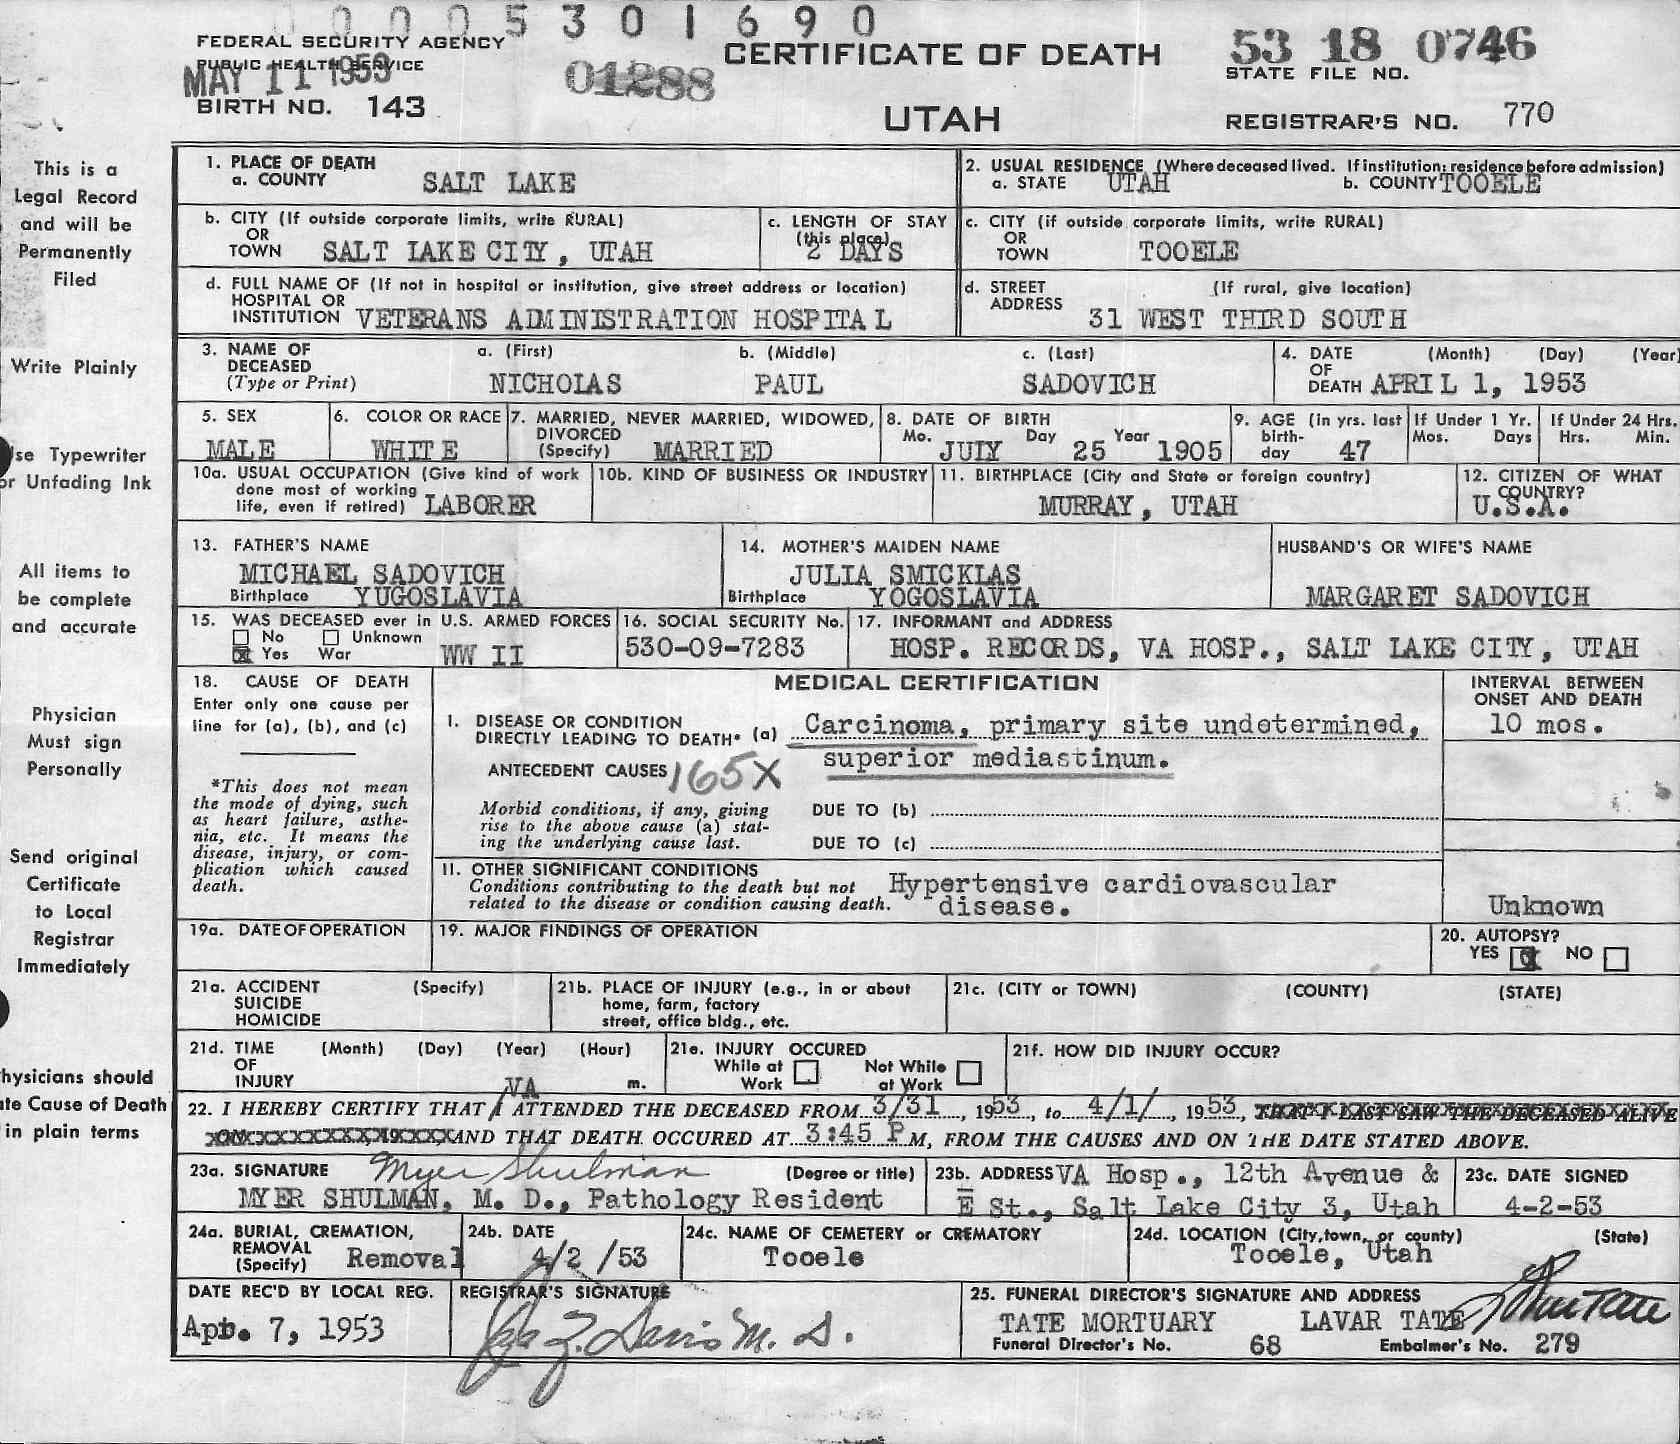 00005301690
FEDERAL SECURITY AGENCY
PUBLIC HEALTH SERVICE
MAY 11 1953
BIRTH NO. 143
01288
CERTIFICATE OF DEATH
UTAH
53 18 0746
STATE FILE NO.
REGISTRAR'S NO. 770
This is a
Legal Record
and will be
Permanently
Filed
Write Plainly
se Typewriter
or Unfading Ink
All items to
be complete
and accurate
Physician
Must sign
Personally
Send original
Certificate
to Local
Registrar
Immediately
hysicians should
ate Cause of Death
in plain terms
1. PLACE OF DEATH
a. COUNTY SALT LAKE
2. USUAL RESIDENCE (Where deceased lived. If institution: residence before admission)
a. STATE UTAH b. COUNTY TOOELE
b. CITY (If outside corporate limits, write RURAL)
OR
TOWN SALT LAKE CITY, UTAH
c. LENGTH OF STAY
(this place)
2 DAYS
c. CITY (if outside corporate limits, write RURAL)
OR
TOWN TOOELE
d. FULL NAME OF (If not in hospital or institution, give street address or location)
HOSPITAL OR
INSTITUTION VETERANS ADMINISTRATION HOSPITAL
d. STREET (If rural, give location)
ADDRESS 31 WEST THIRD SOUTH
3. NAME OF a. (First) b. (Middle) c. (Last)
DECEASED
(Type or Print) NICHOLAS PAUL SADOVICH
4. DATE (Month) (Day) (Year)
OF
DEATH APRIL 1, 1953
5. SEX
MALE
6. COLOR OR RACE
WHITE
7. MARRIED, NEVER MARRIED, WIDOWED,
DIVORCED
(Specify) MARRIED
8. DATE OF BIRTH
Mo. Day Year
JULY 25 1905
9. AGE (in yrs. last
birth-
day 47
If Under 1 Yr.
Mos. Days
If Under 24 Hrs.
Hrs. Min.
10a. USUAL OCCUPATION (Give kind of work
done most of working
life, even if retired) LABORER
10b. KIND OF BUSINESS OR INDUSTRY
11. BIRTHPLACE (City and State or foreign country)
MURRAY, UTAH
12. CITIZEN OF WHAT
COUNTRY?
U.S.A.
13. FATHER'S NAME
MICHAEL SADOVICH
Birthplace YUGOSLAVIA
14. MOTHER'S MAIDEN NAME
JULIA SMICKLAS
Birthplace YOGOSLAVIA
HUSBAND'S OR WIFE'S NAME
MARGARET SADOVICH
15. WAS DECEASED ever in U.S. ARMED FORCES
No Unknown
Yes War WW II
16. SOCIAL SECURITY No.
530-09-7283
17. INFORMANT and ADDRESS
HOSP. RECORDS, VA HOSP., SALT LAKE CITY, UTAH
18. CAUSE OF DEATH
Enter only one cause per
line for (a), (b), and (c)
*This does not mean
the mode of dying, such
as heart failure, asthe-
nia, etc. It means the
disease, injury, or com-
plication which caused
death.
MEDICAL CERTIFICATION
INTERVAL BETWEEN
ONSET AND DEATH
I. DISEASE OR CONDITION
DIRECTLY LEADING TO DEATH* (a) Carcinoma, primary site undetermined,
superior mediastinum.
10 mos.
ANTECEDENT CAUSES 165X
Morbid conditions, if any, giving
rise to the above cause (a) stat-
ing the underlying cause last.
DUE TO (b)
DUE TO (c)
11. OTHER SIGNIFICANT CONDITIONS
Conditions contributing to the death but not
related to the disease or condition causing death.
Hypertensive cardiovascular
disease.
Unknown
19a. DATE OF OPERATION
19. MAJOR FINDINGS OF OPERATION
20. AUTOPSY?
YES NO
21a. ACCIDENT (Specify)
SUICIDE
HOMICIDE
21b. PLACE OF INJURY (e.g., in or about
home, farm, factory
street, office bldg., etc.
21c. (CITY or TOWN) (COUNTY) (STATE)
21d. TIME (Month) (Day) (Year) (Hour)
OF
INJURY m.
21e. INJURY OCCURED
While at Work
Not While at Work
21f. HOW DID INJURY OCCUR?
VA
22. I HEREBY CERTIFY THAT I ATTENDED THE DECEASED FROM 3/31, 1953, to 4/1/, 1953, THAT I LAST SAW THE DECEASED ALIVE
ON xxxxxxxxx, 19xxxx AND THAT DEATH OCCURED AT 3:45 P M, FROM THE CAUSES AND ON THE DATE STATED ABOVE.
23a. SIGNATURE Myer Shulman (Degree or title)
MYER SHULMAN, M. D., Pathology Resident
23b. ADDRESS VA Hosp., 12th Avenue &
E St., Salt Lake City 3, Utah
23c. DATE SIGNED
4-2-53
24a. BURIAL, CREMATION,
REMOVAL
(Specify) Removal
24b. DATE
4/2 /53
24c. NAME OF CEMETERY or CREMATORY
Tooele
24d. LOCATION (City, town, or county) (State)
Tooele, Utah
DATE REC'D BY LOCAL REG.
Apr. 7, 1953
REGISTRAR'S SIGNATURE
Davis M. D.
25. FUNERAL DIRECTOR'S SIGNATURE AND ADDRESS
TATE MORTUARY LAVAR TATE
Funeral Director's No. 68 Embalmer's No. 279